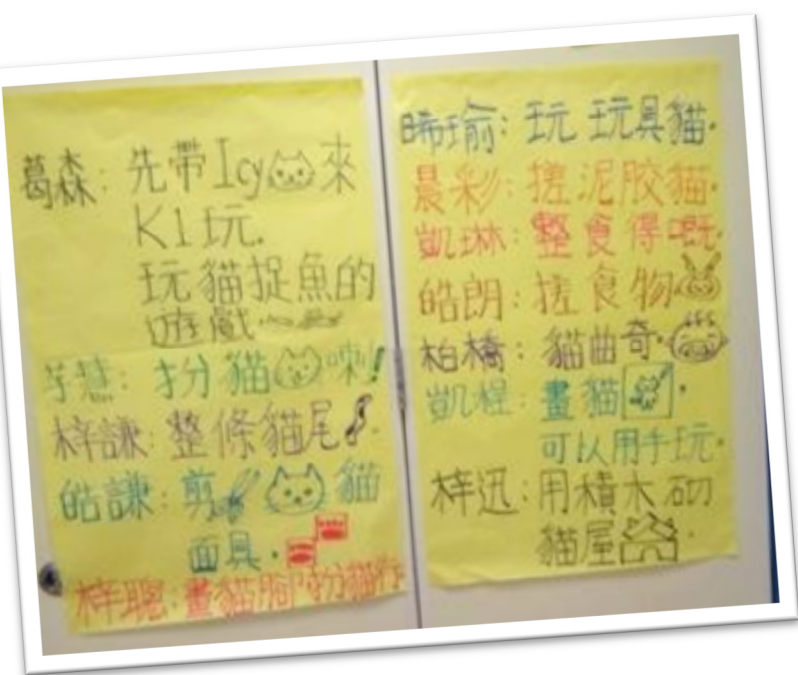 葛森：先帶Icy來
K1玩.
玩貓捉魚的
遊戲.
芊慧：扮貓喇!
梓謙：整條貓尾.
皓謙：剪貓
面具.
梓聰：畫貓腳扮貓
晞瑜：玩玩具貓.
晨彩：搓泥胶貓.
凱琳：整食得嘅.
皓朗：搓食物
柏橋：貓曲奇.
凱桯：畫貓.
可以用手玩.
梓迅：用積木砌
貓屋.